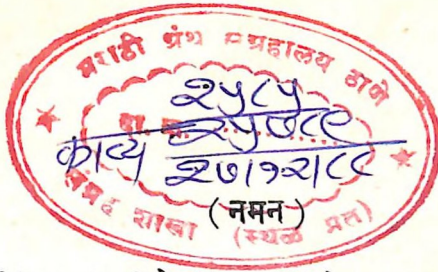 मराठी ग्रंथ संग्रहालय ठाणे
२५८५
दा. क्र. २५७८९
काव्य २७/१२/८८
(नमन)
शाखा (स्थळ प्रत)